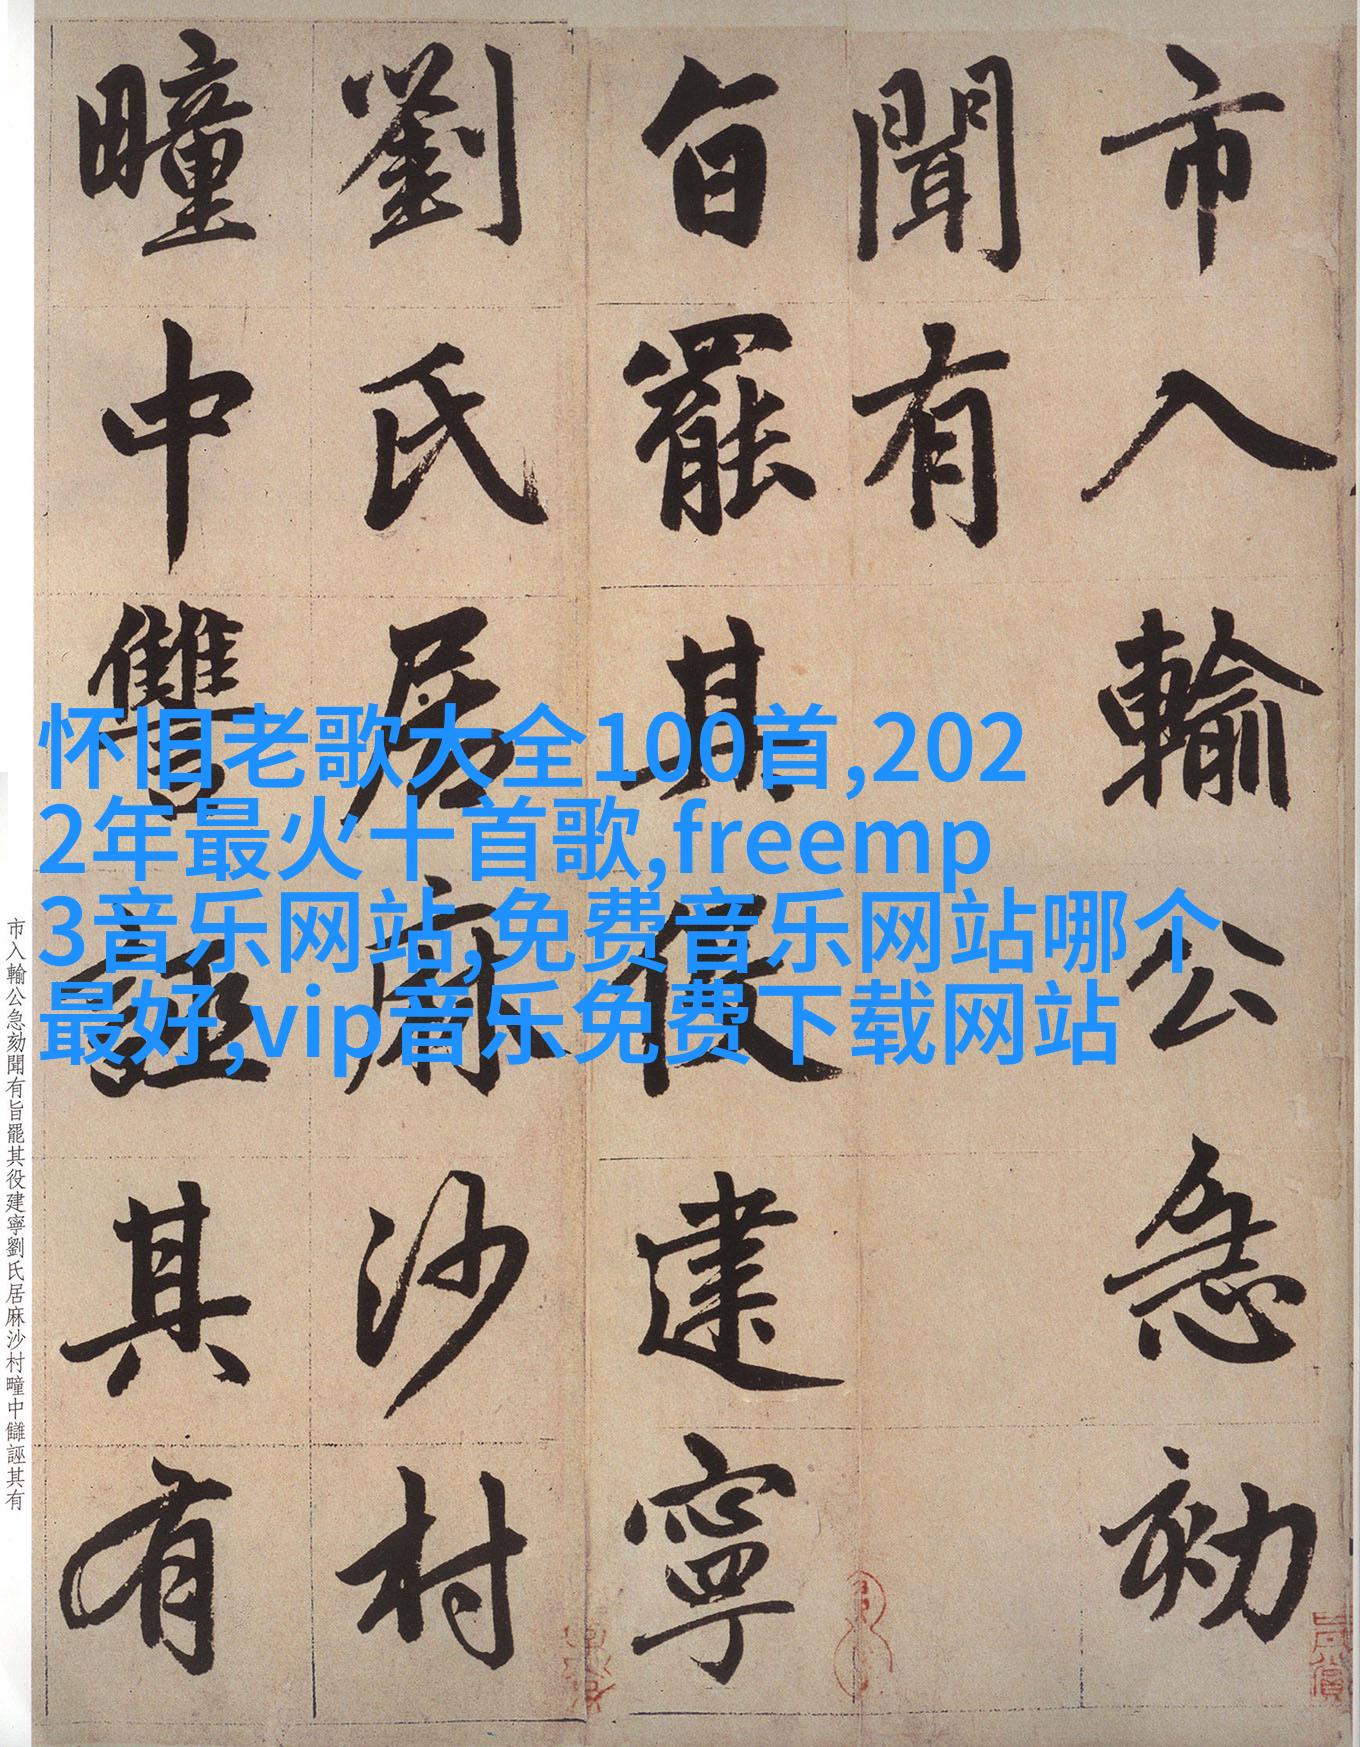 市入輸公急劾
聞有
旨罷其役建寧
劉氏居麻沙村
疃中讐誣其有
怀旧老歌大全100首,202
2年最火十首歌,freemp
3音乐网站,免费音乐网站哪个
最好,vip音乐免费下载网站
市入輸公急劾聞有旨罷其役建寧劉氏居麻沙村疃中讎誣其有